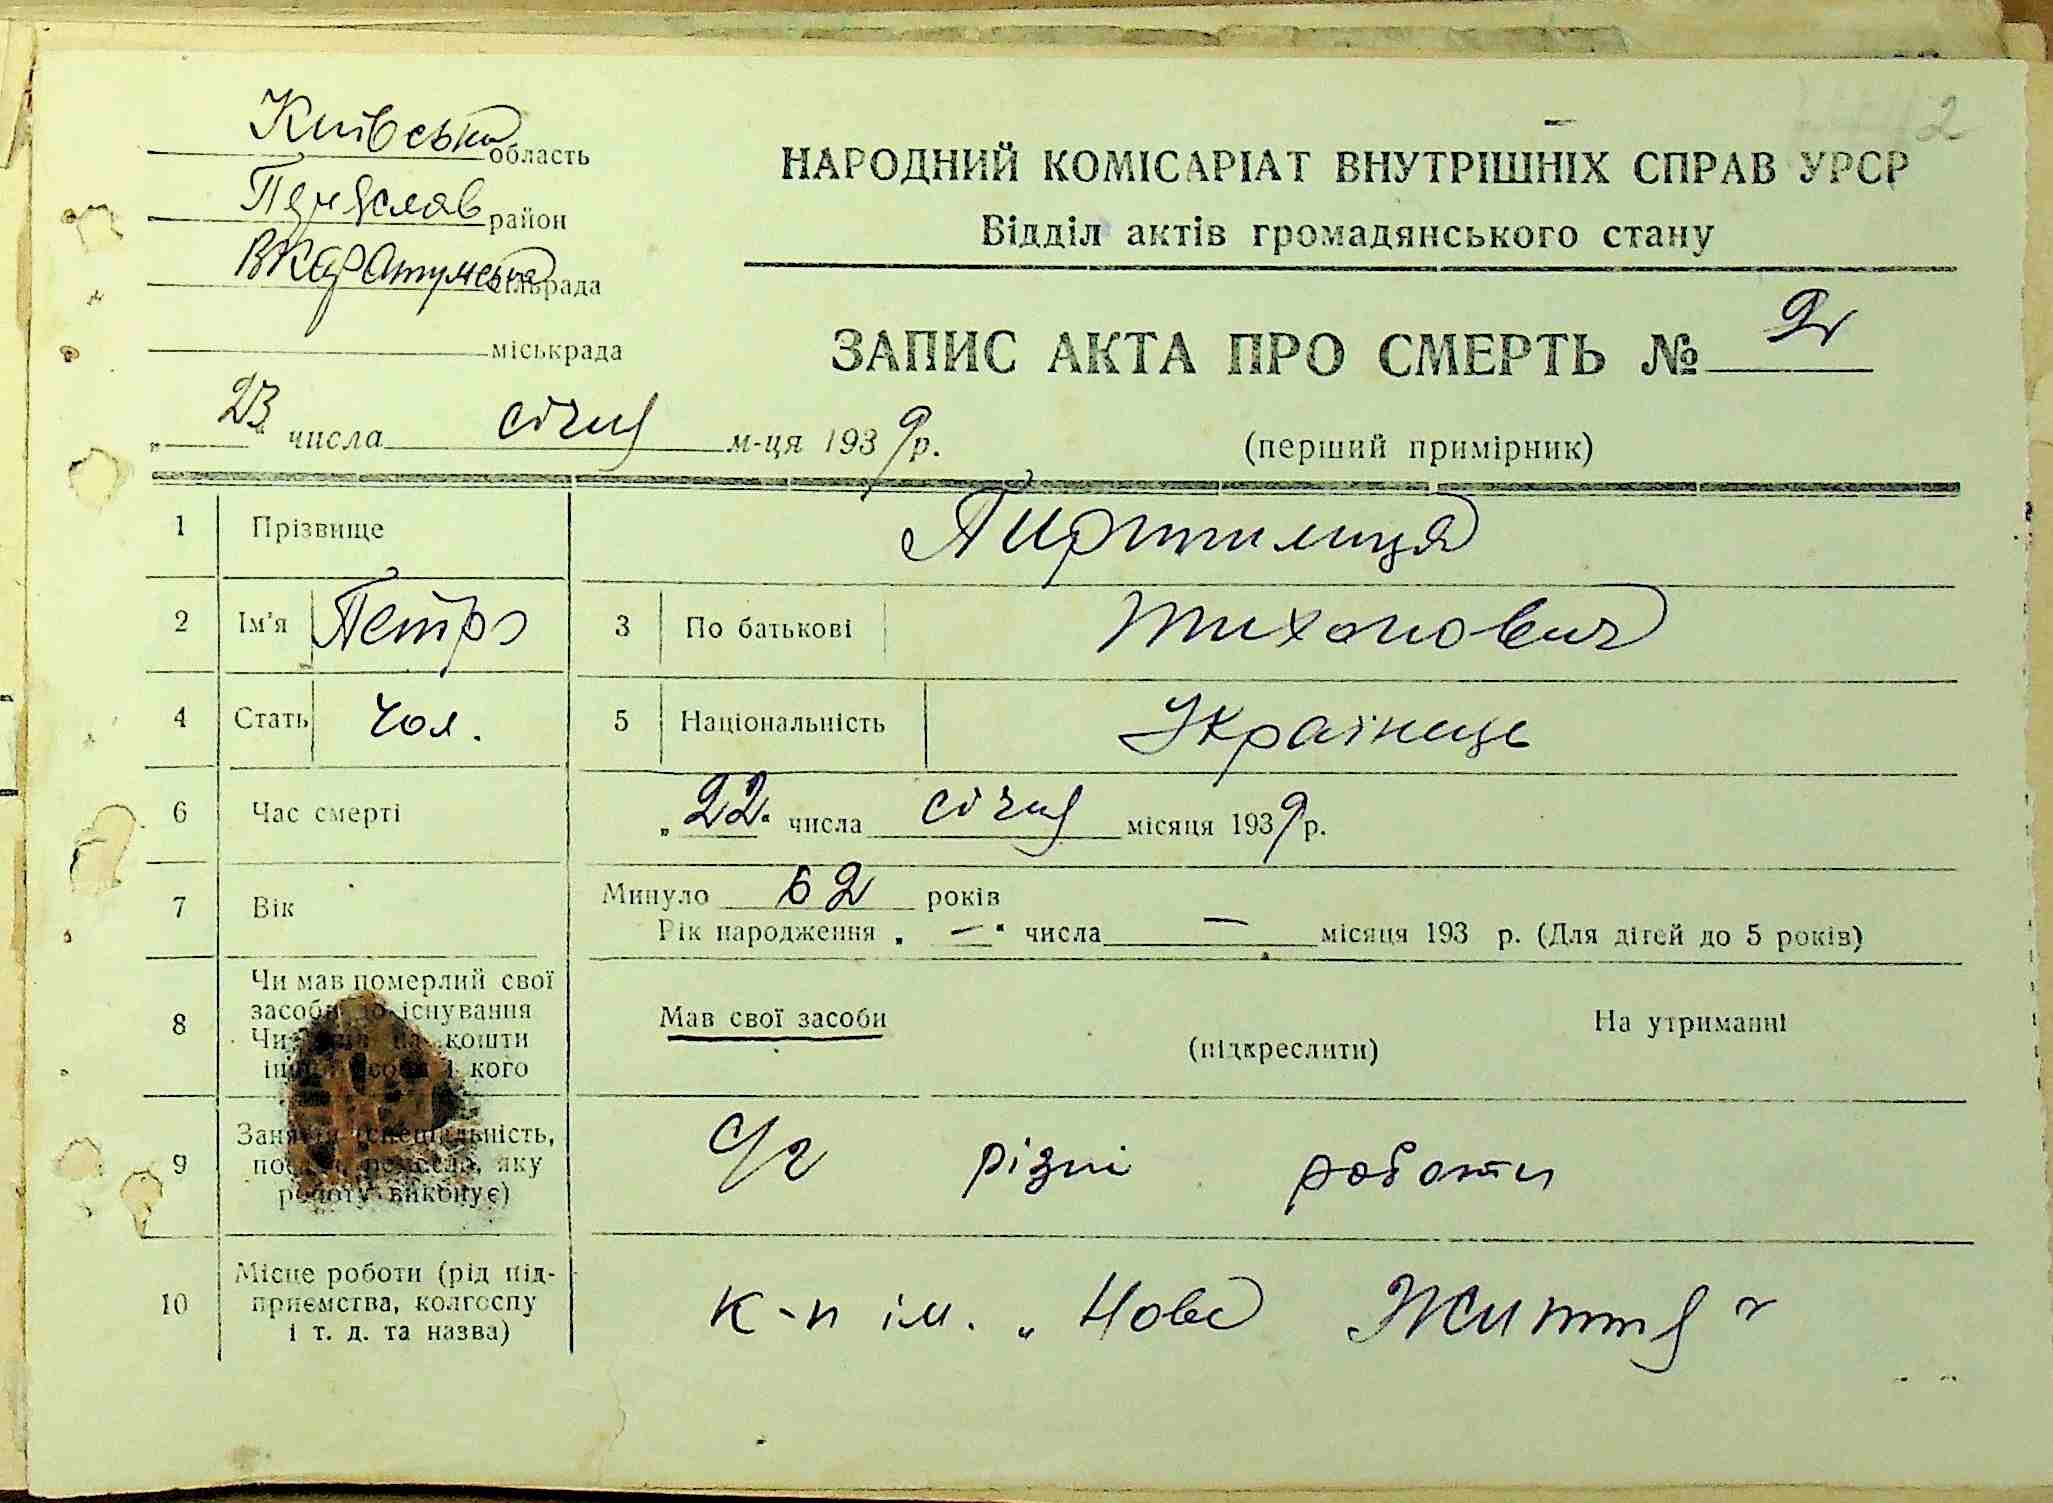 2
Київська область
Переяслав район
ВКаратульська сільрада
міськрада
НАРОДНИЙ КОМІСАРІАТ ВНУТРІШНІХ СПРАВ УРСР
Відділ актів громадянського стану
ЗАПИС АКТА ПРО СМЕРТЬ № 2
„23“ числа січня м-ця 1939 р.
(перший примірник)
1 Прізвище
2 Ім'я Петро 3 По батькові Тихонович
4 Стать чол. 5 Національність Українець
6 Час смерті „22“ числа січня місяця 1939 р.
7 Вік Минуло 62 років
Рік народження „—“ числа — місяця 193 р. (Для дітей до 5 років)
8 Чи мав померлий свої засоби до існування Чи жив на кошти іншої особи і кого
Мав свої засоби (підкреслити) На утриманні
9 Заняття (спеціальність, посада, ремесло, яку роботу виконує) с/г різні роботи
10 Місце роботи (рід підприємства, колгоспу і т. д. та назва) к-п ім. „Нове Життя"